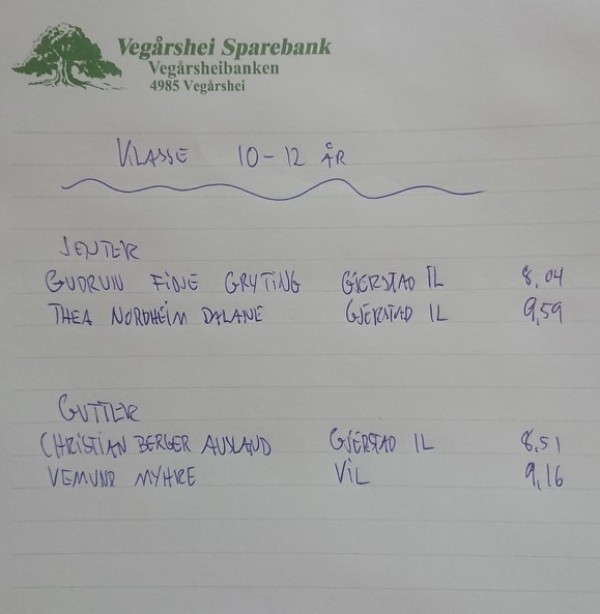 Vegårshei Sparebank
Vegårsheibanken
4985 Vegårshei
KLASSE 10-12 ÅR
JENTER
GUDRUN FINE GRYTING GJERSTAD IL 8,04
THEA NORDHEIM DALANE GJERSTAD IL 9,59
GUTTER
CHRISTIAN BERGER AUSLAND GJERSTAD IL 8,51
VEMUND MYHRE VIL 9,16